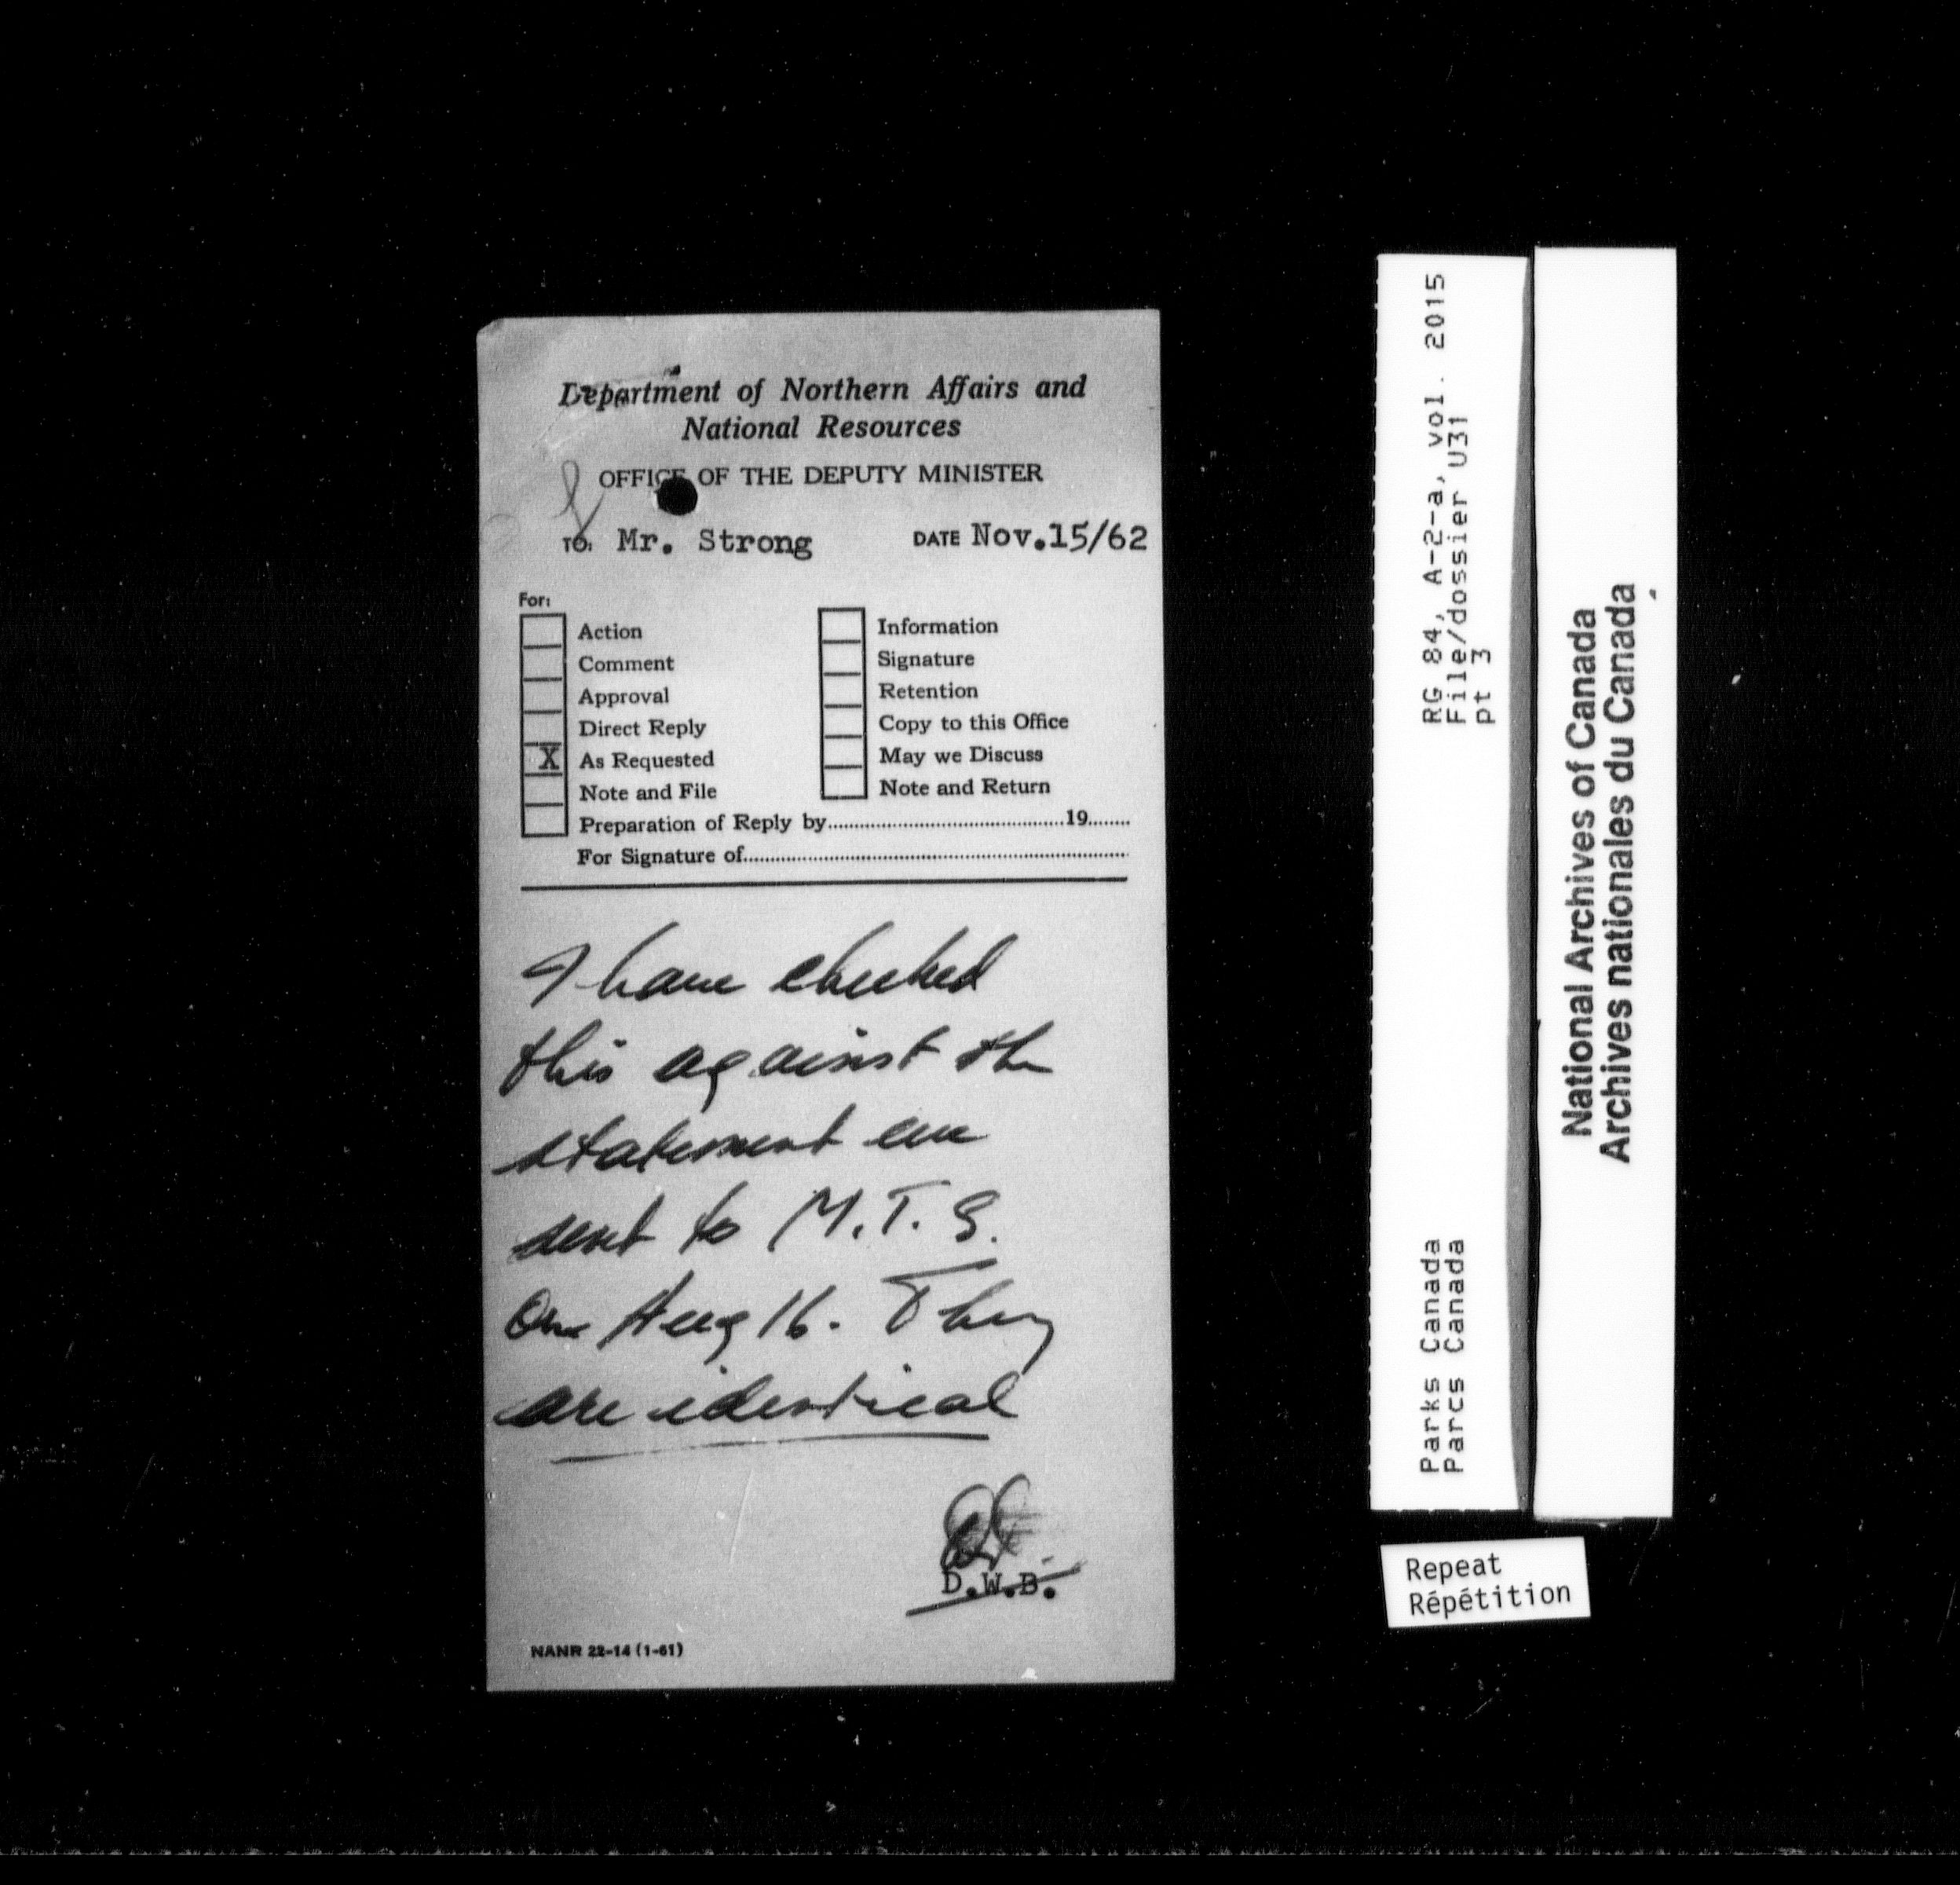 Department of Northern Affairs and
National Resources
OFFICE OF THE DEPUTY MINISTER
TO: Mr. Strong DATE Nov.15/62
For:
Action
Comment
Approval
Direct Reply
X As Requested
Note and File
Preparation of Reply by 19
For Signature of
Information
Signature
Retention
Copy to this Office
May we Discuss
Note and Return
I have checked
this against the
statement we
sent to M.T.S.
On Aug 16. They
are identical
D.W.B.
NANR 22-14 (1-61)
RG 84, A-2-a, vol. 2015
File/dossier U31
pt 3
Parks Canada
Parcs Canada
National Archives of Canada
Archives nationales du Canada
Repeat
Répétition